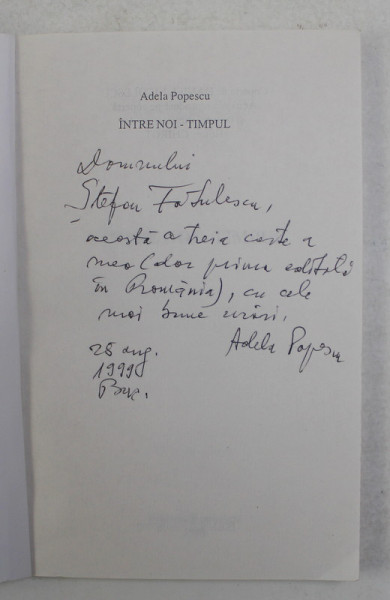 Adela Popescu
ÎNTRE NOI - TIMPUL
Domnului
Ștefan Fătulescu,
această a treia carte a
mea (dar prima editată
în România), cu cele
mai bune urări,
Adela Popescu
25 aug.
1999
Buc.